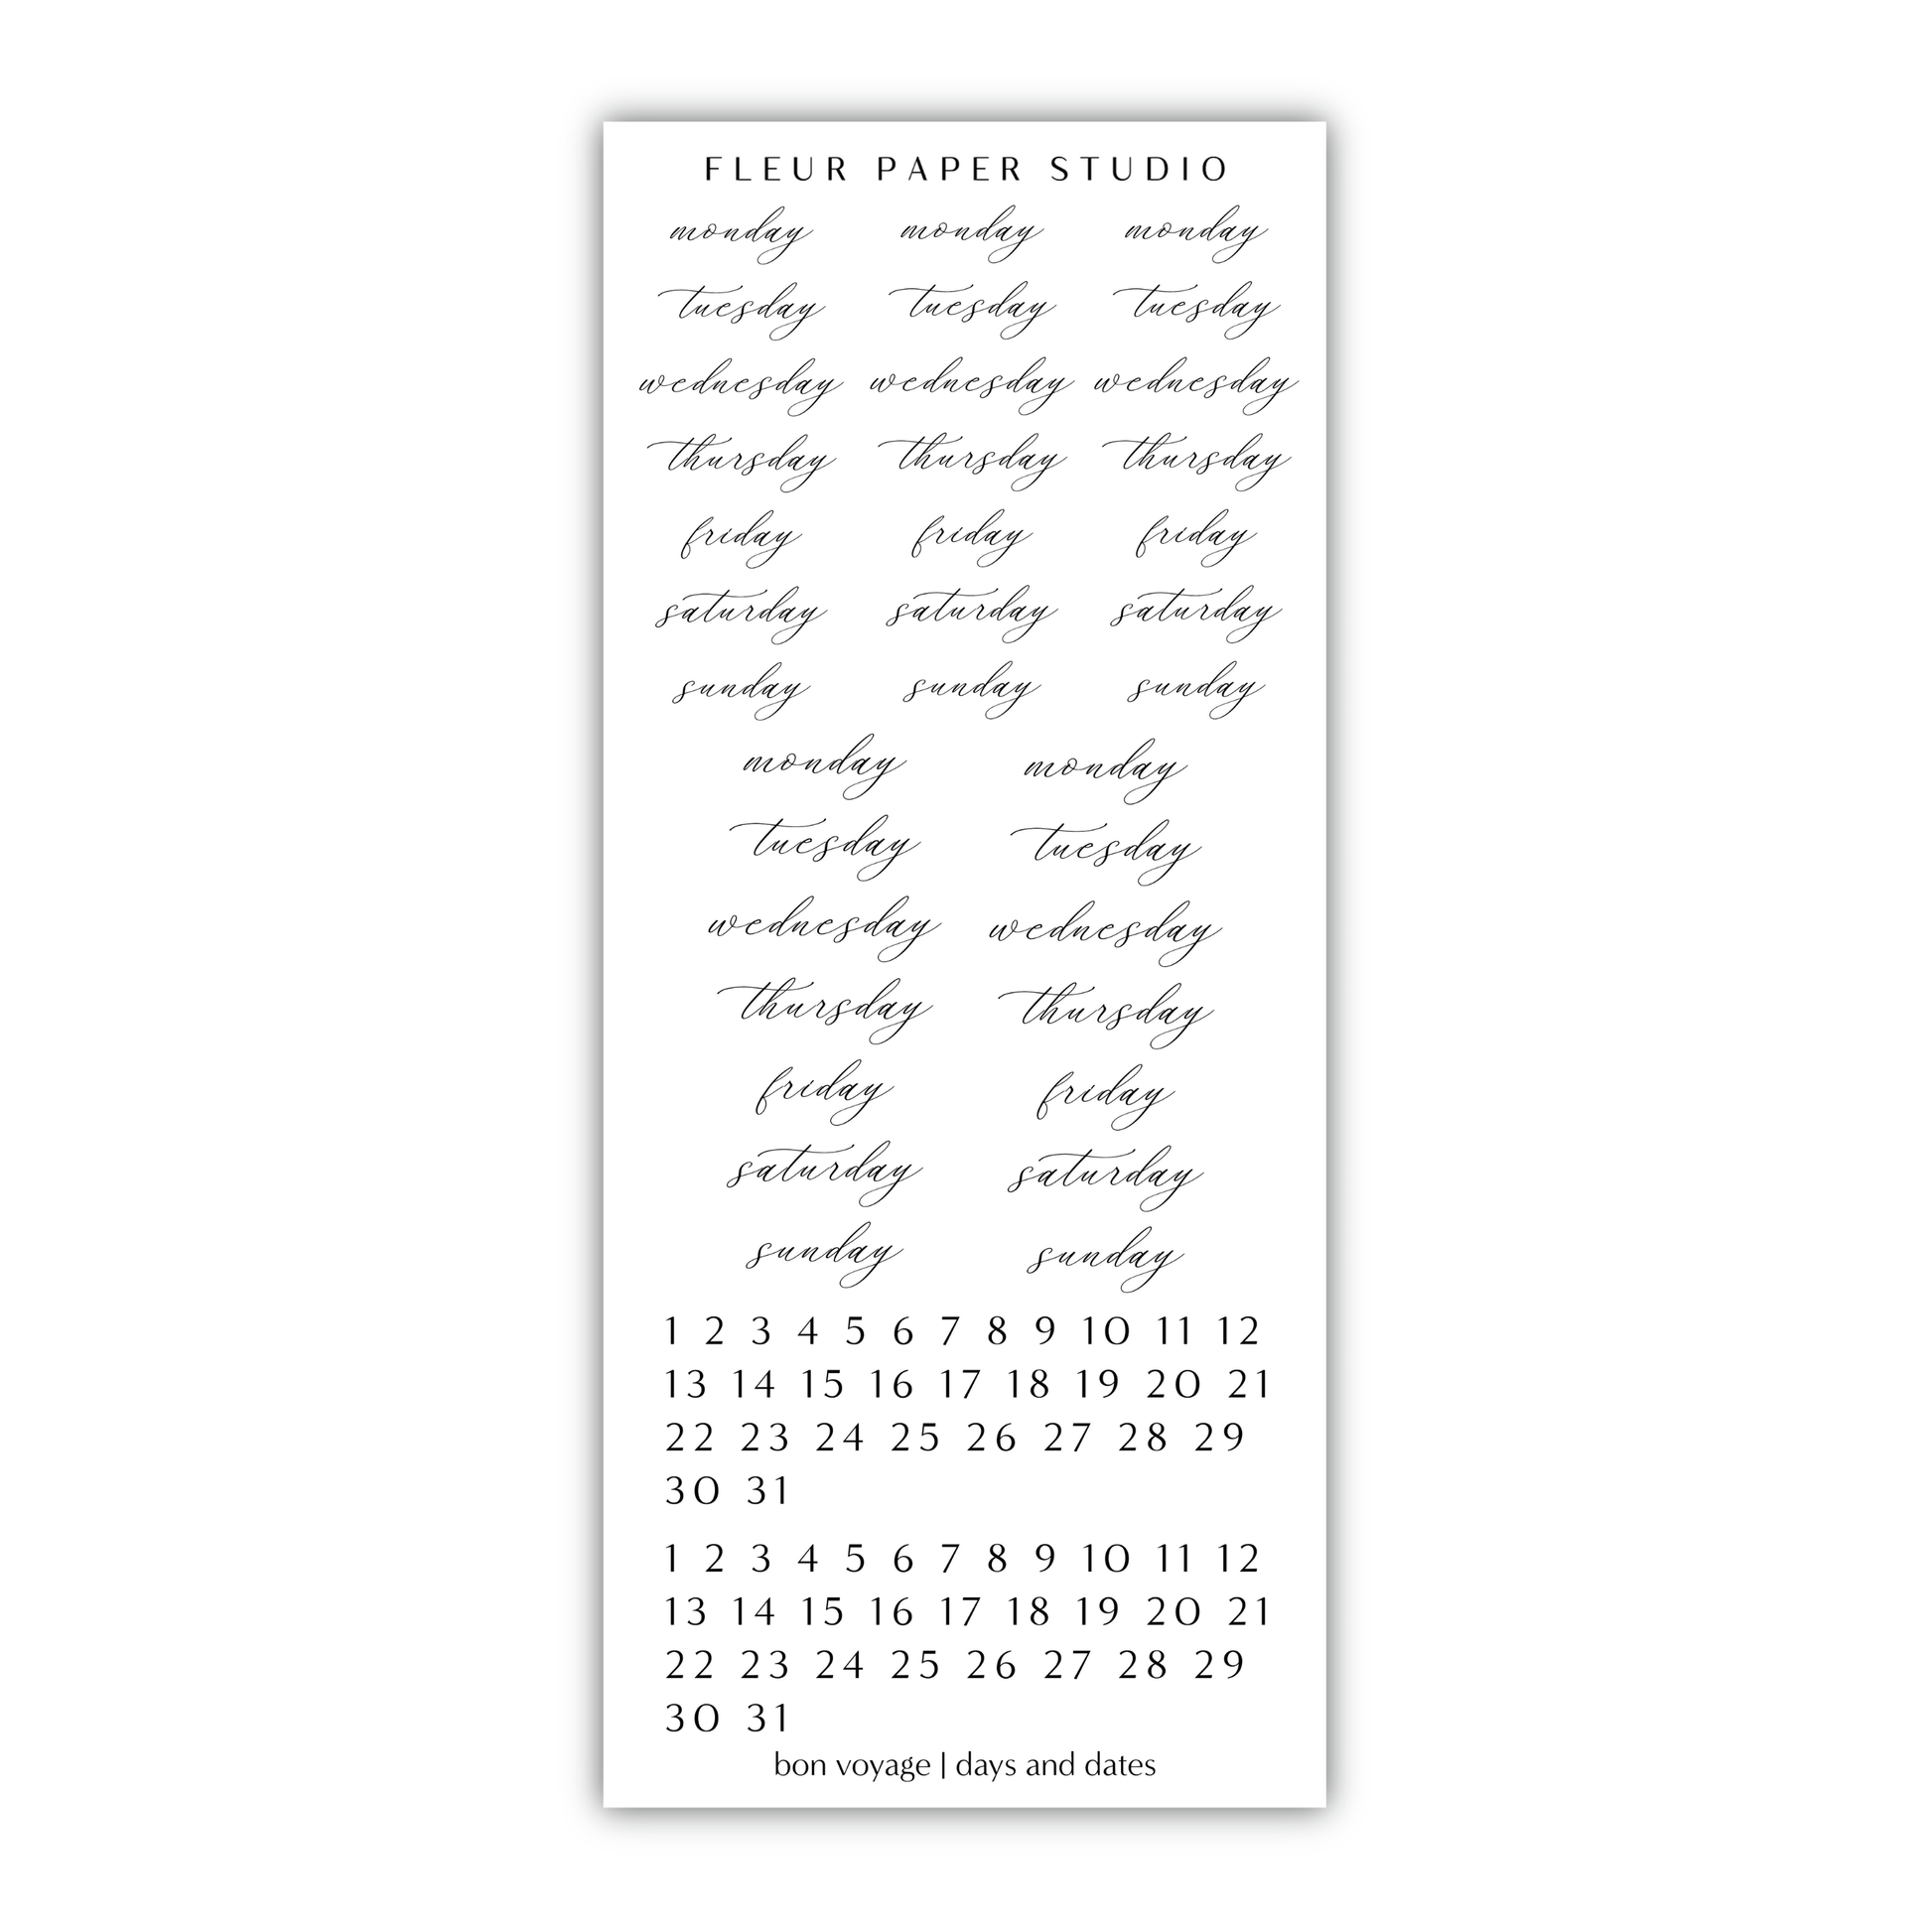 FLEUR PAPER STUDIO
monday monday monday
tuesday tuesday tuesday
wednesday wednesday wednesday
thursday thursday thursday
friday friday friday
saturday saturday saturday
sunday sunday sunday
monday monday
tuesday tuesday
wednesday wednesday
thursday thursday
friday friday
saturday saturday
sunday sunday
1 2 3 4 5 6 7 8 9 10 11 12
13 14 15 16 17 18 19 20 21
22 23 24 25 26 27 28 29
30 31
1 2 3 4 5 6 7 8 9 10 11 12
13 14 15 16 17 18 19 20 21
22 23 24 25 26 27 28 29
30 31
bon voyage | days and dates